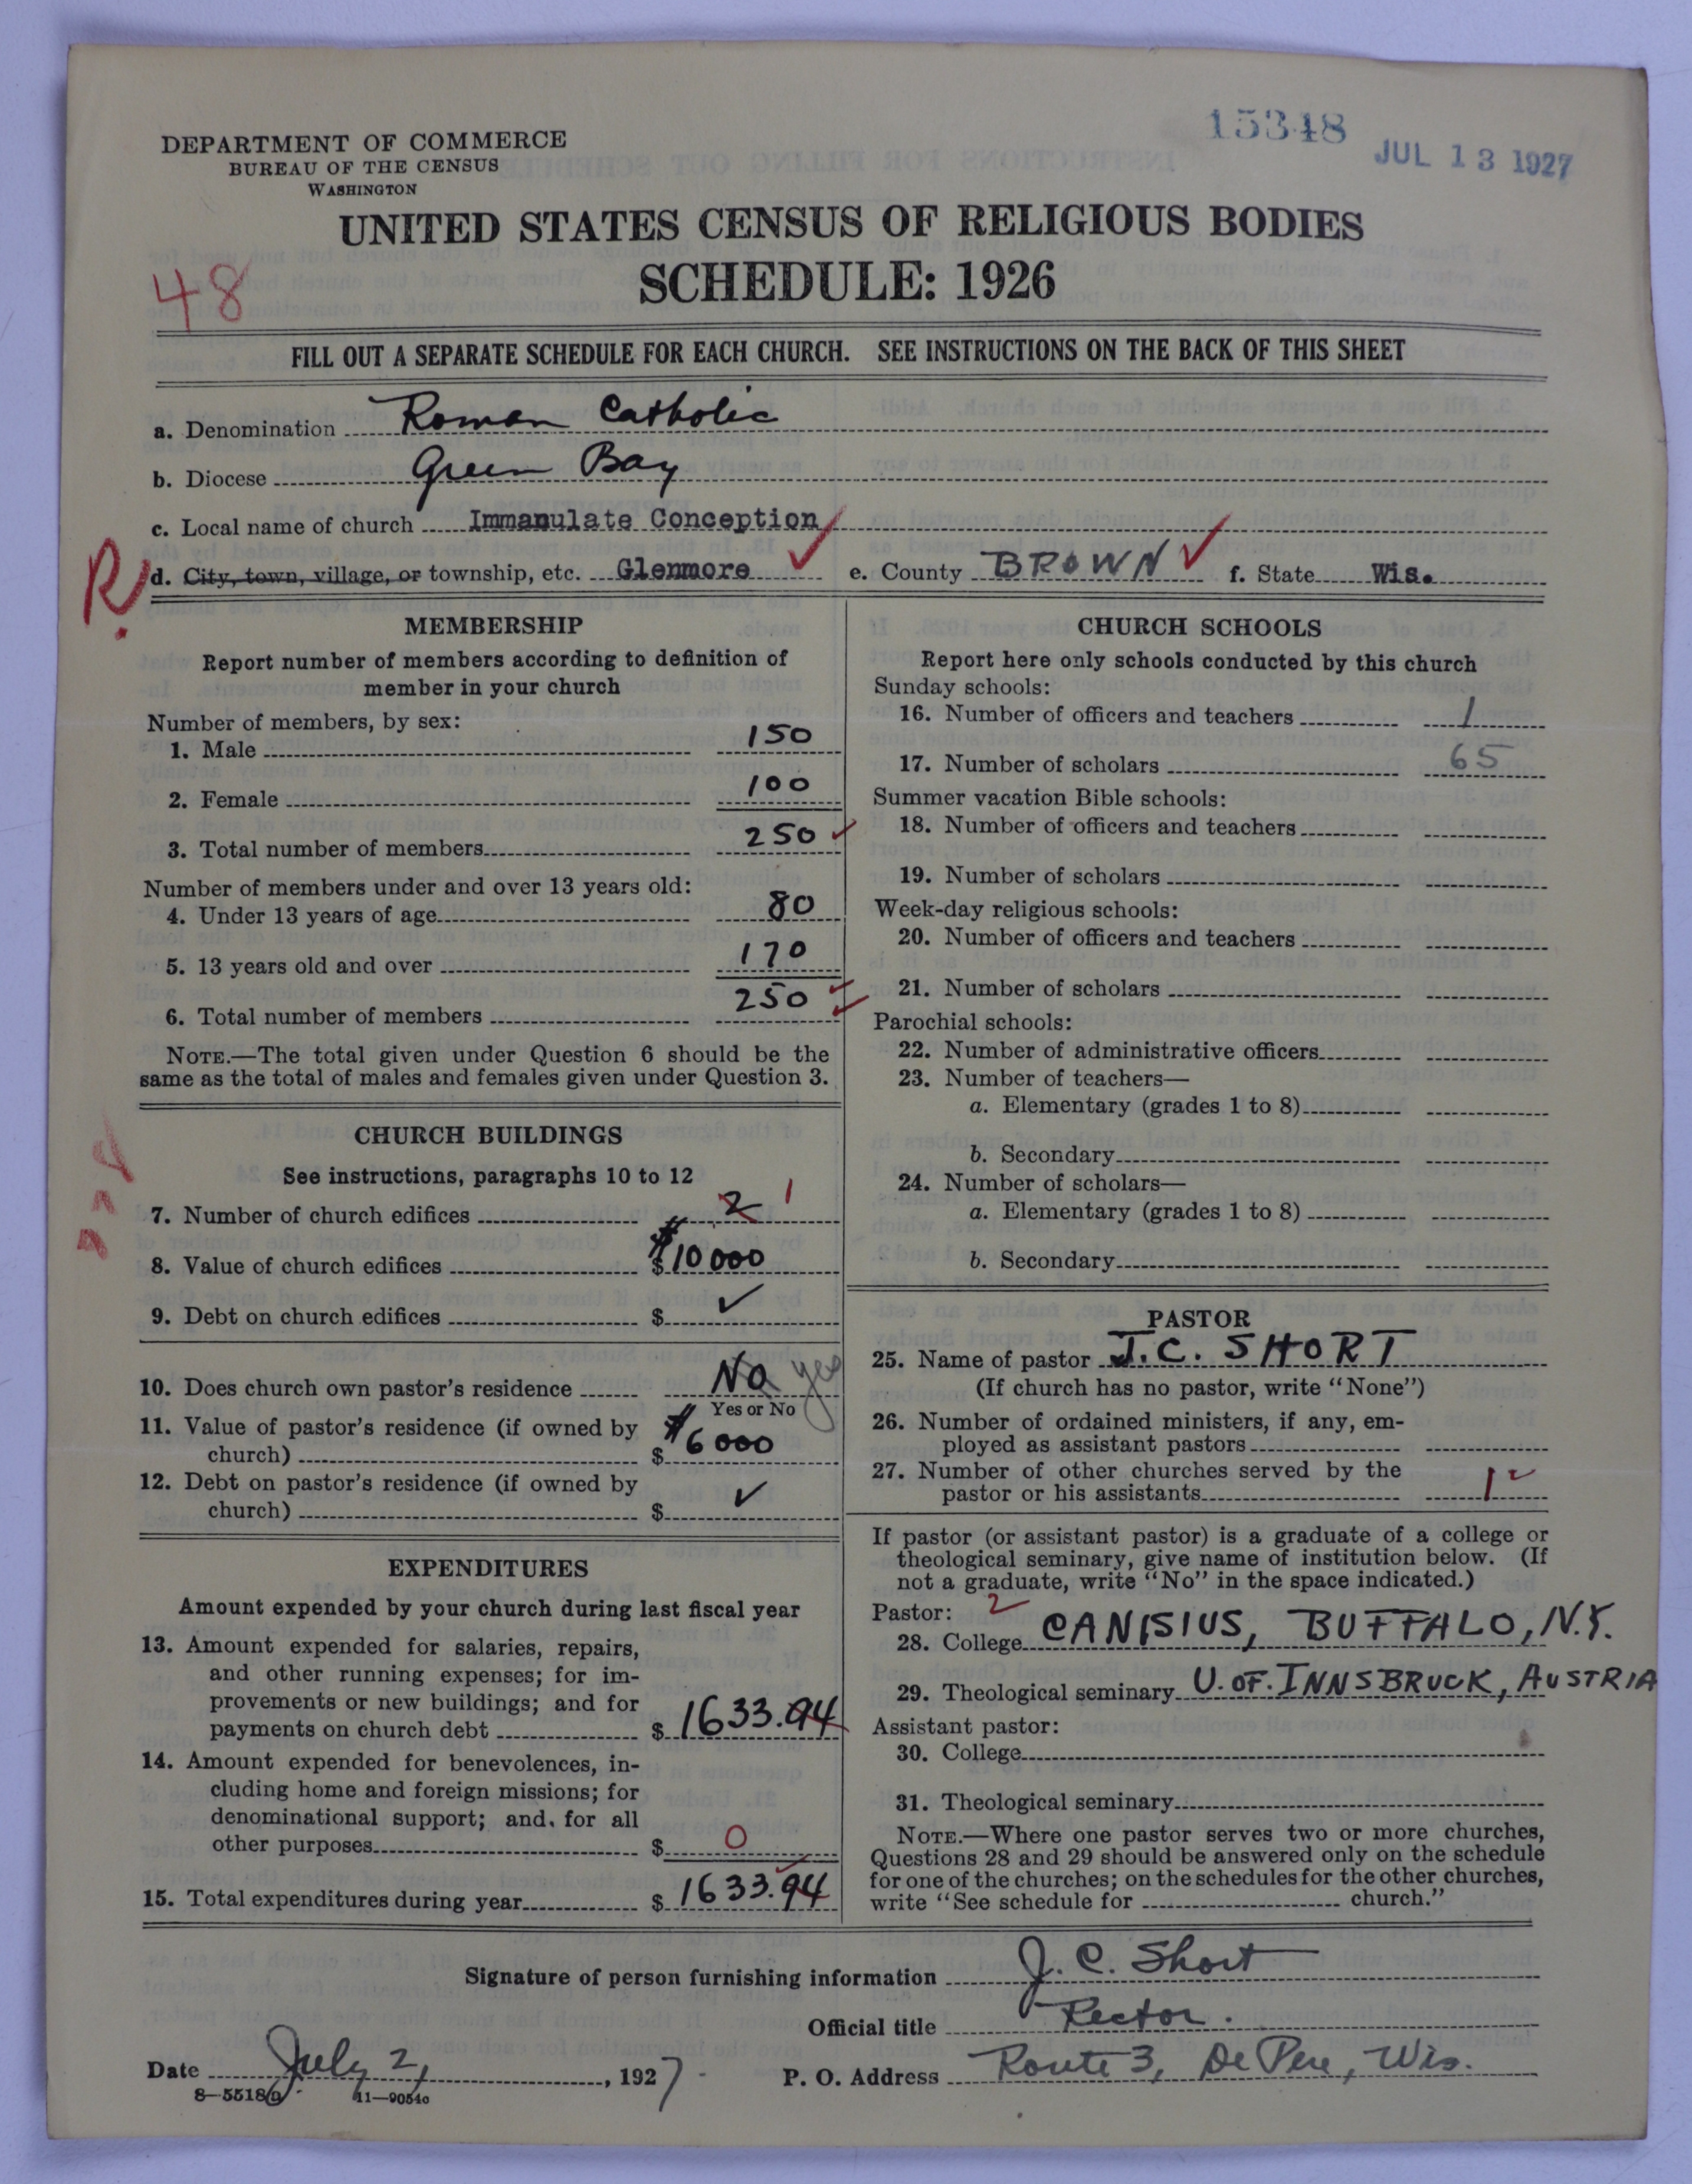 15348
JUL 13 1927
DEPARTMENT OF COMMERCE
BUREAU OF THE CENSUS
WASHINGTON
UNITED STATES CENSUS OF RELIGIOUS BODIES
SCHEDULE: 1926
48
FILL OUT A SEPARATE SCHEDULE FOR EACH CHURCH. SEE INSTRUCTIONS ON THE BACK OF THIS SHEET
a. Denomination Roman Catholic
b. Diocese Green Bay
c. Local name of church Immaculate Conception
R. d. City, town, village, or township, etc. Glenmore e. County BROWN f. State Wis.
MEMBERSHIP
Report number of members according to definition of
member in your church
Number of members, by sex:
1. Male 150
2. Female 100
3. Total number of members 250
Number of members under and over 13 years old:
4. Under 13 years of age 80
5. 13 years old and over 170
6. Total number of members 250
NOTE.—The total given under Question 6 should be the
same as the total of males and females given under Question 3.
CHURCH BUILDINGS
See instructions, paragraphs 10 to 12
7. Number of church edifices 2 1
8. Value of church edifices $ $10000
9. Debt on church edifices $ ✓
10. Does church own pastor's residence No yes
Yes or No
11. Value of pastor's residence (if owned by
church) $ $6000
12. Debt on pastor's residence (if owned by
church) $ ✓
EXPENDITURES
Amount expended by your church during last fiscal year
13. Amount expended for salaries, repairs,
and other running expenses; for im-
provements or new buildings; and for
payments on church debt $ 1633.94
14. Amount expended for benevolences, in-
cluding home and foreign missions; for
denominational support; and for all
other purposes $ 0
15. Total expenditures during year $ 1633.94
CHURCH SCHOOLS
Report here only schools conducted by this church
Sunday schools:
16. Number of officers and teachers 1
17. Number of scholars 65
Summer vacation Bible schools:
18. Number of officers and teachers
19. Number of scholars
Week-day religious schools:
20. Number of officers and teachers
21. Number of scholars
Parochial schools:
22. Number of administrative officers
23. Number of teachers—
a. Elementary (grades 1 to 8)
b. Secondary
24. Number of scholars—
a. Elementary (grades 1 to 8)
b. Secondary
PASTOR
25. Name of pastor J.C. SHORT
(If church has no pastor, write "None")
26. Number of ordained ministers, if any, em-
ployed as assistant pastors
27. Number of other churches served by the
pastor or his assistants 1
If pastor (or assistant pastor) is a graduate of a college or
theological seminary, give name of institution below. (If
not a graduate, write "No" in the space indicated.)
Pastor: 2
28. College CANISIUS, BUFFALO, N.Y.
29. Theological seminary U. OF. INNSBRUCK, AUSTRIA
Assistant pastor:
30. College
31. Theological seminary
NOTE.—Where one pastor serves two or more churches,
Questions 28 and 29 should be answered only on the schedule
for one of the churches; on the schedules for the other churches,
write "See schedule for church."
Signature of person furnishing information J. C. Short
Official title Rector.
Date July 2, 1927 P. O. Address Route 3, De Pere, Wis.
8—5518 11—9054